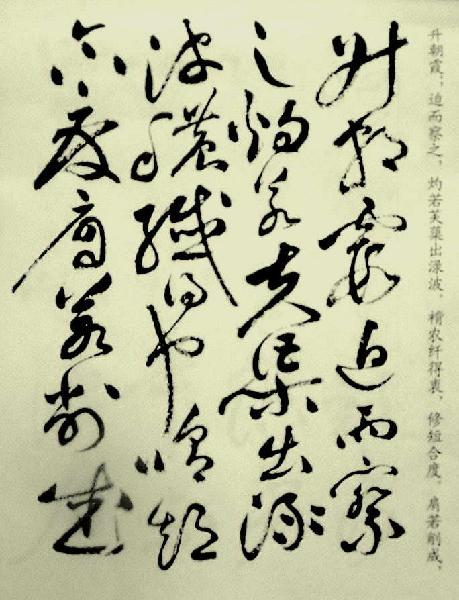 升朝霞;,迫而察之,灼若芙蕖出渌波,农纤得衷,修短合度,肩若削成,
升朝霞迫而察
之灼若夫渠出渌
波穠纖得中脩短
合度肩若削成